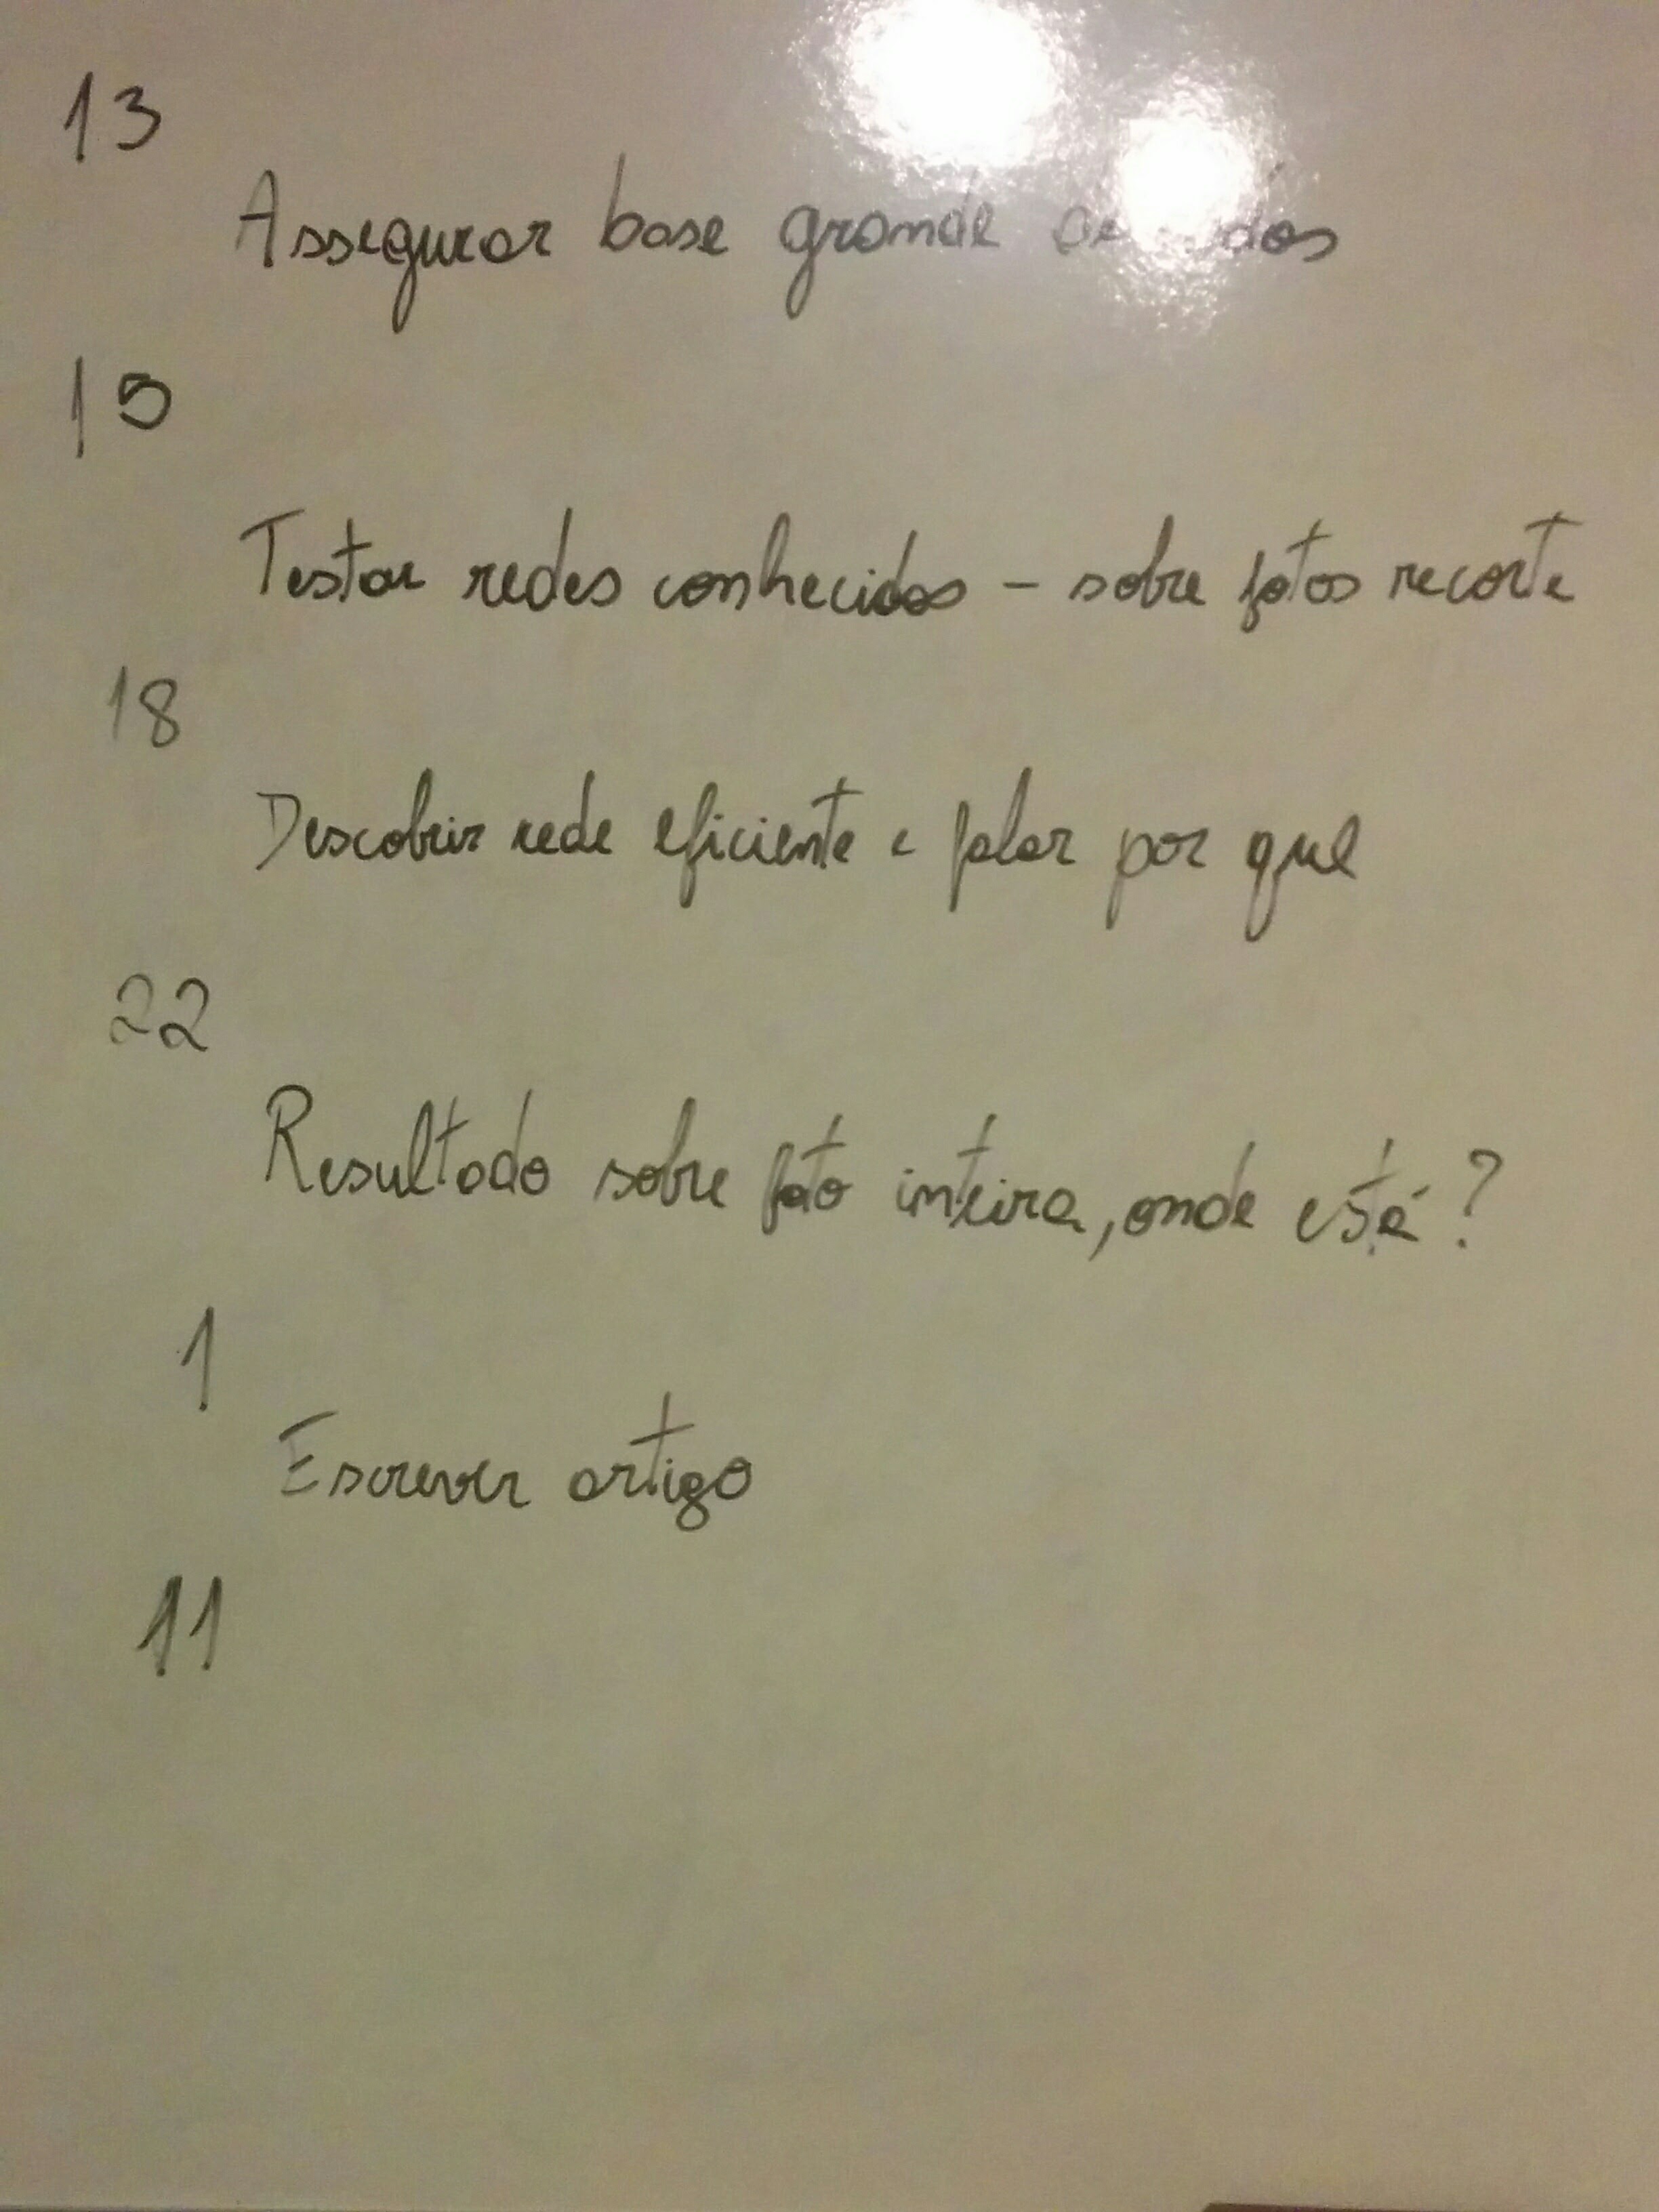 13
Assegurar base grande de dados
15
Testar redes conhecidas - sobre fotos recorte
18
Descobrir rede eficiente e falar por que
22
Resultado sobre foto inteira, onde está?
1
Escrever artigo
11